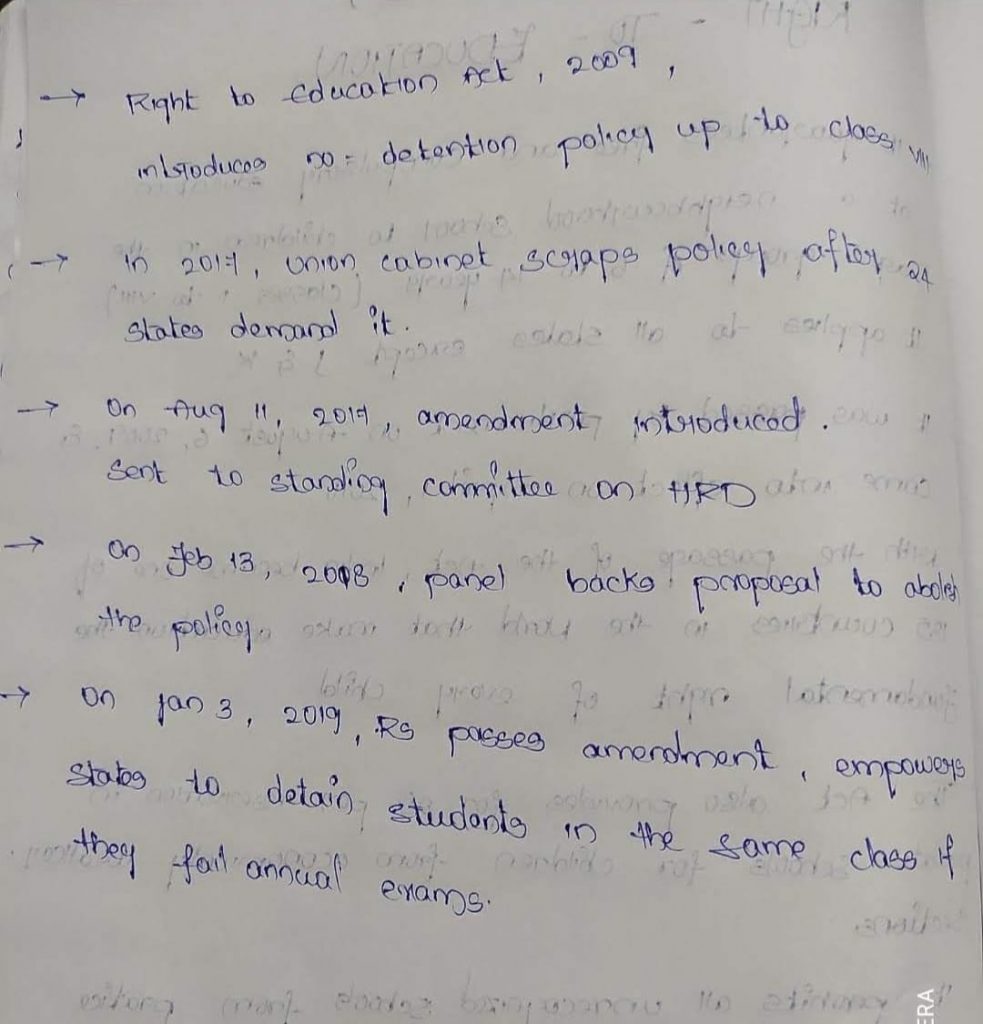 → Right to Education Act, 2009,
introduces no-detention policy up to class VIII
→ In 2017, union cabinet scraps policy after 24
states demand it.
→ On Aug 11, 2017, amendment introduced.
Sent to standing committee on HRD
→ On Feb 13, 2018, panel backs proposal to abolish
the policy
→ On Jan 3, 2019, RS passes amendment, empowers
states to detain students in the same class if
they fail annual exams.
ERA